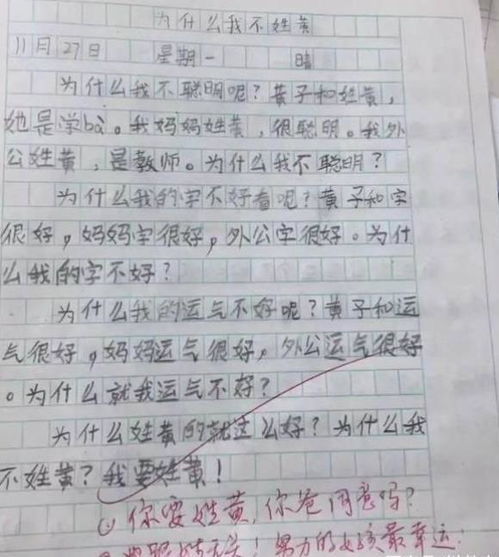 为什么我不姓黄
11月27日 星期一 晴
为什么我不聪明呢？黄子和姓黄，
她是学bà。我妈妈姓黄，很聪明。我外
公姓黄，是教师。为什么我不聪明？
为什么我的字不好看呢？黄子和字
很好，妈妈字很好，外公字很好。为什
么我的字不好？
为什么我的运气不好呢？黄子和运
气很好，妈妈运气很好，外公运气很好
。为什么就我运气不好？
为什么姓黄的就这么好？为什么我
不姓黄？我要姓黄！
① 你要姓黄，你爸同意吗？
努力的女孩最幸运